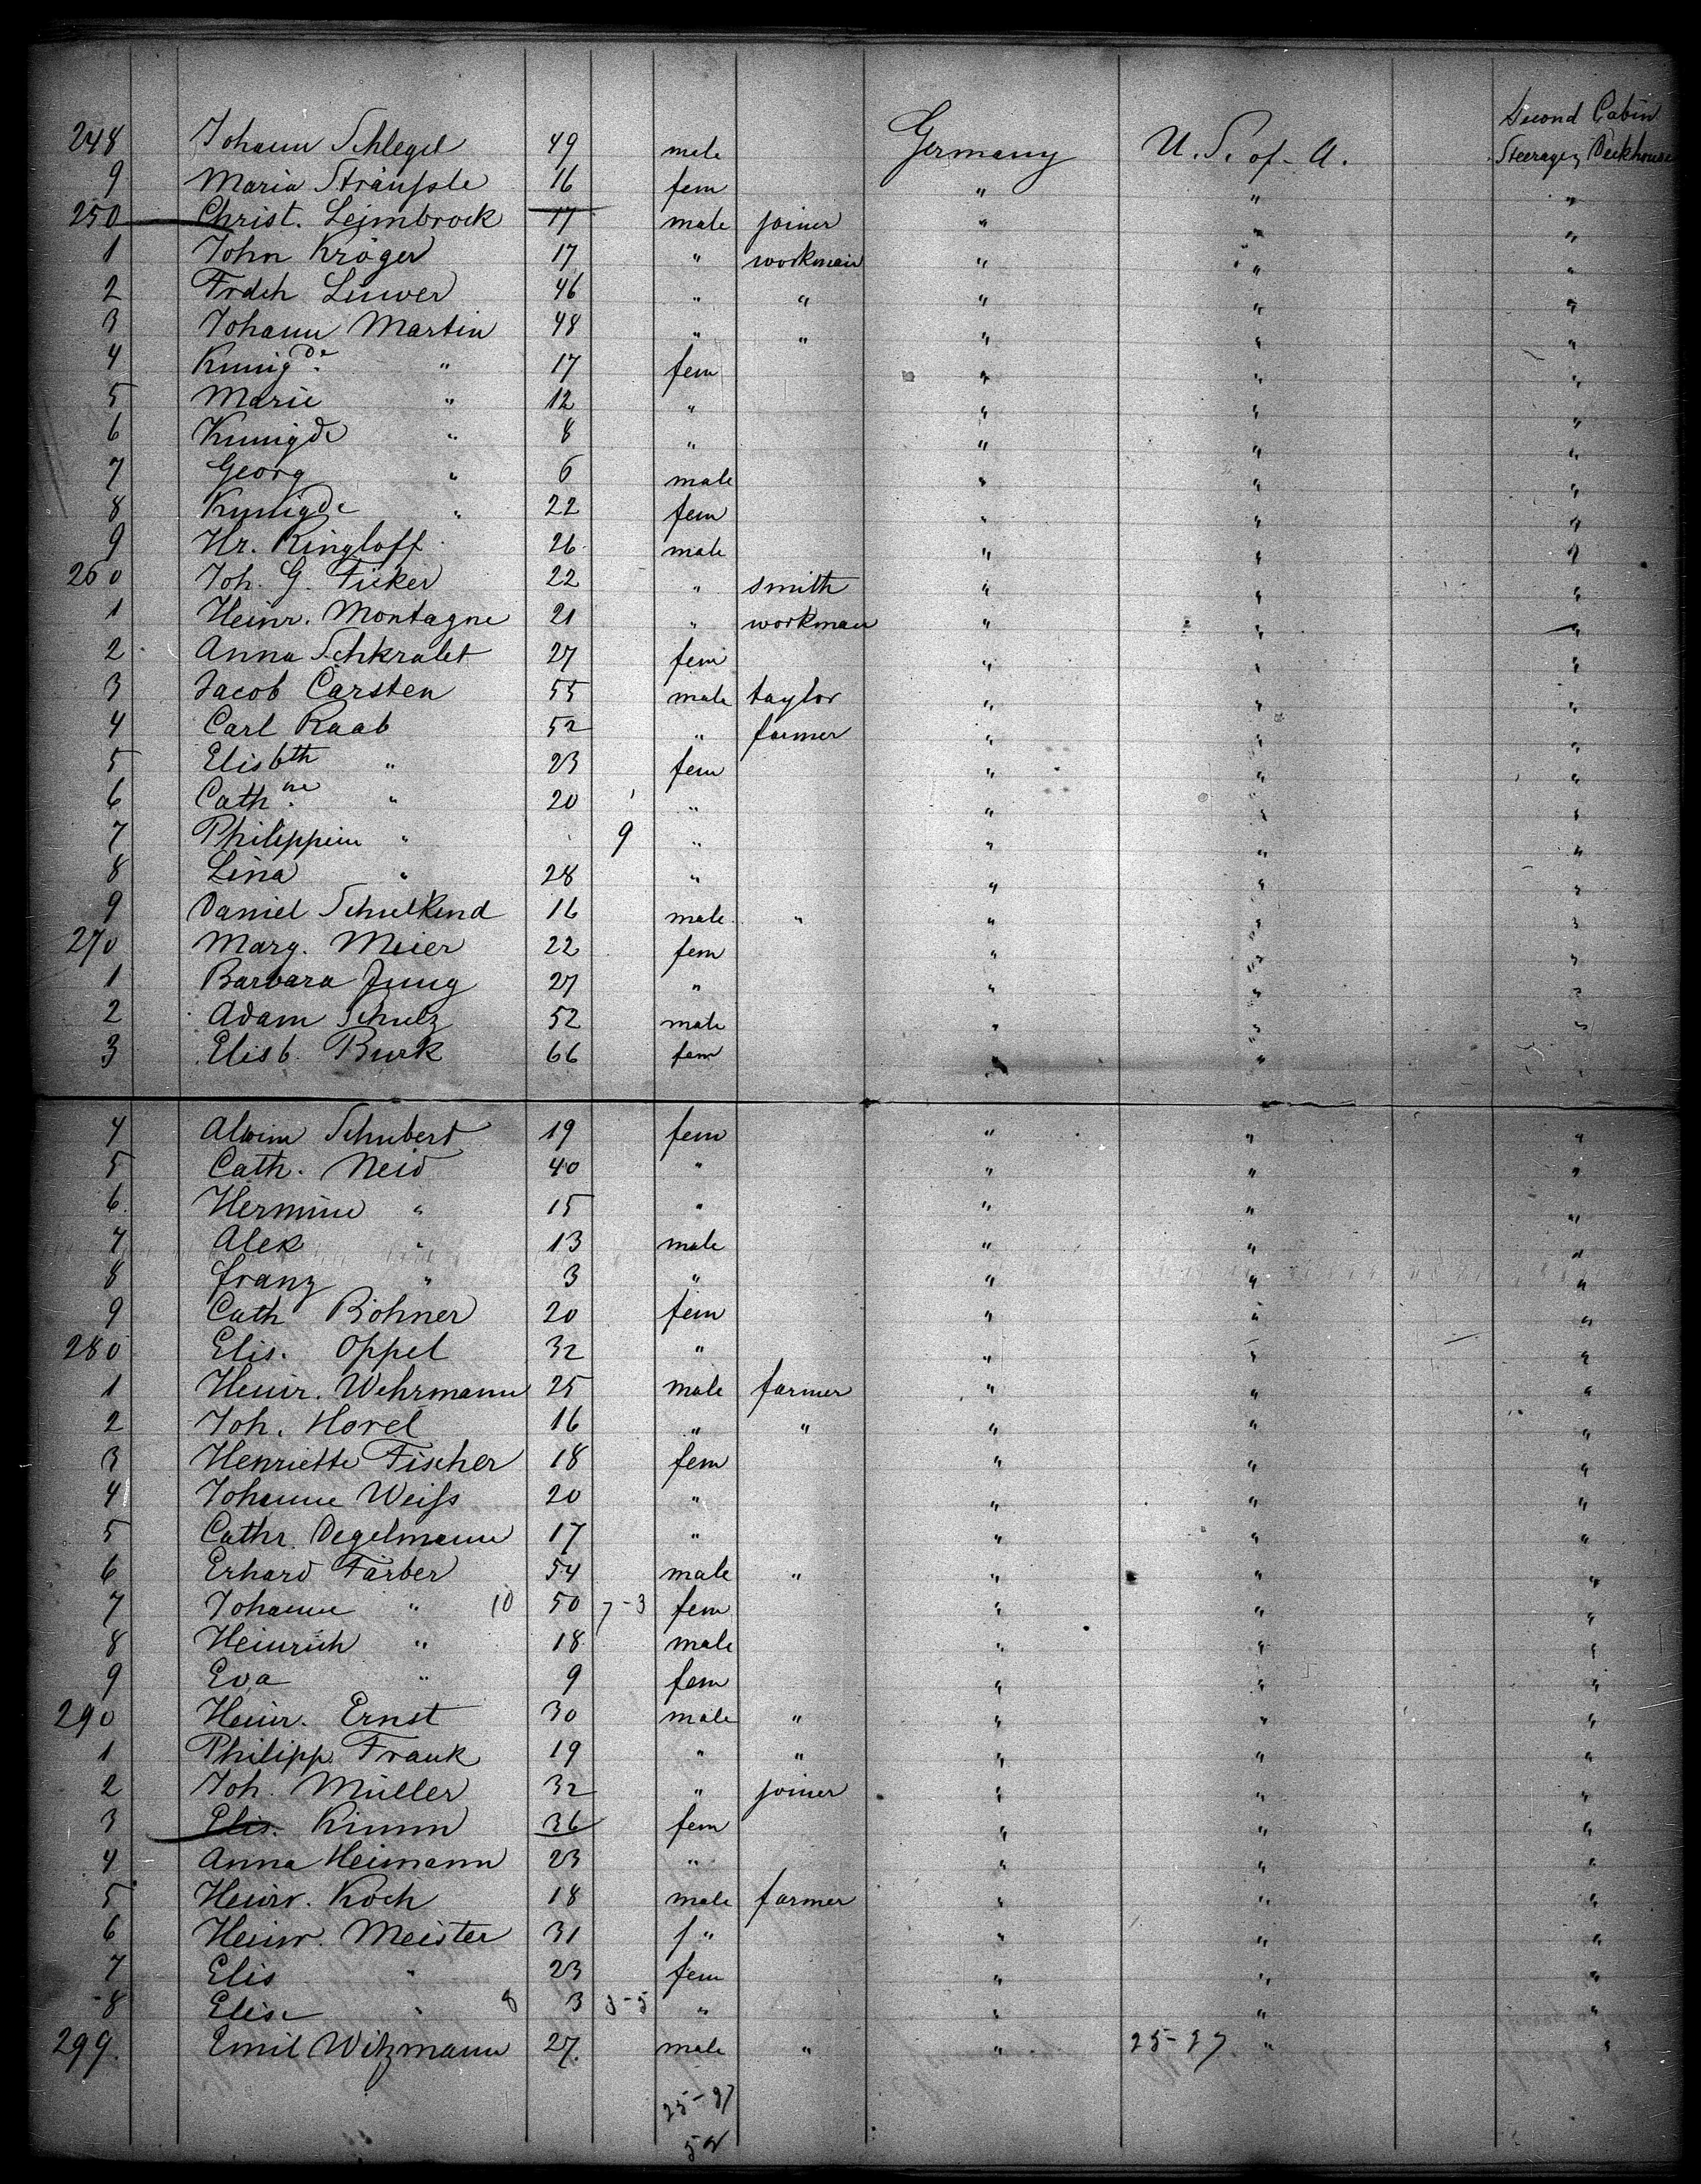 Second Cabin
248 Johann Schlegel 49 male Germany U. S. of A. Steerage, Deckhouse
9 Maria Sträussle 16 fem " " "
250 Christ. Leimbrock 17 male joiner " " "
1 John Kröger 17 " workman " " "
2 Frdch Lüwer 46 " " " " "
3 Johann Martin 48 " " " " "
4 Kunigde " 17 fem " " "
5 Marie " 12 " " " "
6 Kunigde " 8 " " " "
7 Georg " 6 male " " "
8 Kunigde " 22 fem " " "
9 Hr. Ringloff 26 male " " "
260 Joh. G. Ficker 22 " smith " " "
1 Heinr. Montagne 21 " workman " " "
2 Anna Schkralet 27 fem " " "
3 Jacob Carsten 55 male taylor " " "
4 Carl Raab 52 " farmer " " "
5 Elisbth " 23 fem " " "
6 Cathne " 20 " " " "
7 Philippin " 9 " " " "
8 Lina " 28 " " " "
9 Daniel Schulkind 16 male " " " "
270 Marg. Meier 22 fem " " "
1 Barbara Jung 27 " " " "
2 Adam Schulz 52 male " " "
3 Elisb. Burk 66 fem " " "
4 Alwine Schubert 19 fem " " "
5 Cath. Neid 40 " " " "
6 Hermine " 15 " " " "
7 Alex " 13 male " " "
8 Franz " 3 " " " "
9 Cath Böhner 20 fem " " "
280 Elis. Oppel 32 " " " "
1 Heinr. Wehrmann 25 male farmer " " "
2 Joh. Horel 16 " " " " "
3 Henriette Fischer 18 fem " " "
4 Johanne Weiss 20 " " " "
5 Cathr. Degelmann 17 " " " "
6 Erhard Färber 54 male " " " "
7 Johanne " 10 50 7-3 fem " " "
8 Heinrich " 18 male " " "
9 Eva " 9 fem " " "
290 Heinr. Ernst 30 male " " " "
1 Philipp Frank 19 " " " " "
2 Joh. Müller 32 " joiner " " "
3 Elis. Kimm 36 fem " " "
4 Anna Heimann 23 " " " "
5 Heinr. Koch 18 male farmer " " "
6 Heinr. Meister 31 " " " "
7 Elis " 23 fem " " "
8 Elise " 8 3 3-5 " " " "
299. Emil Witzmann 27. male " " 25-27 " "
25-27
52